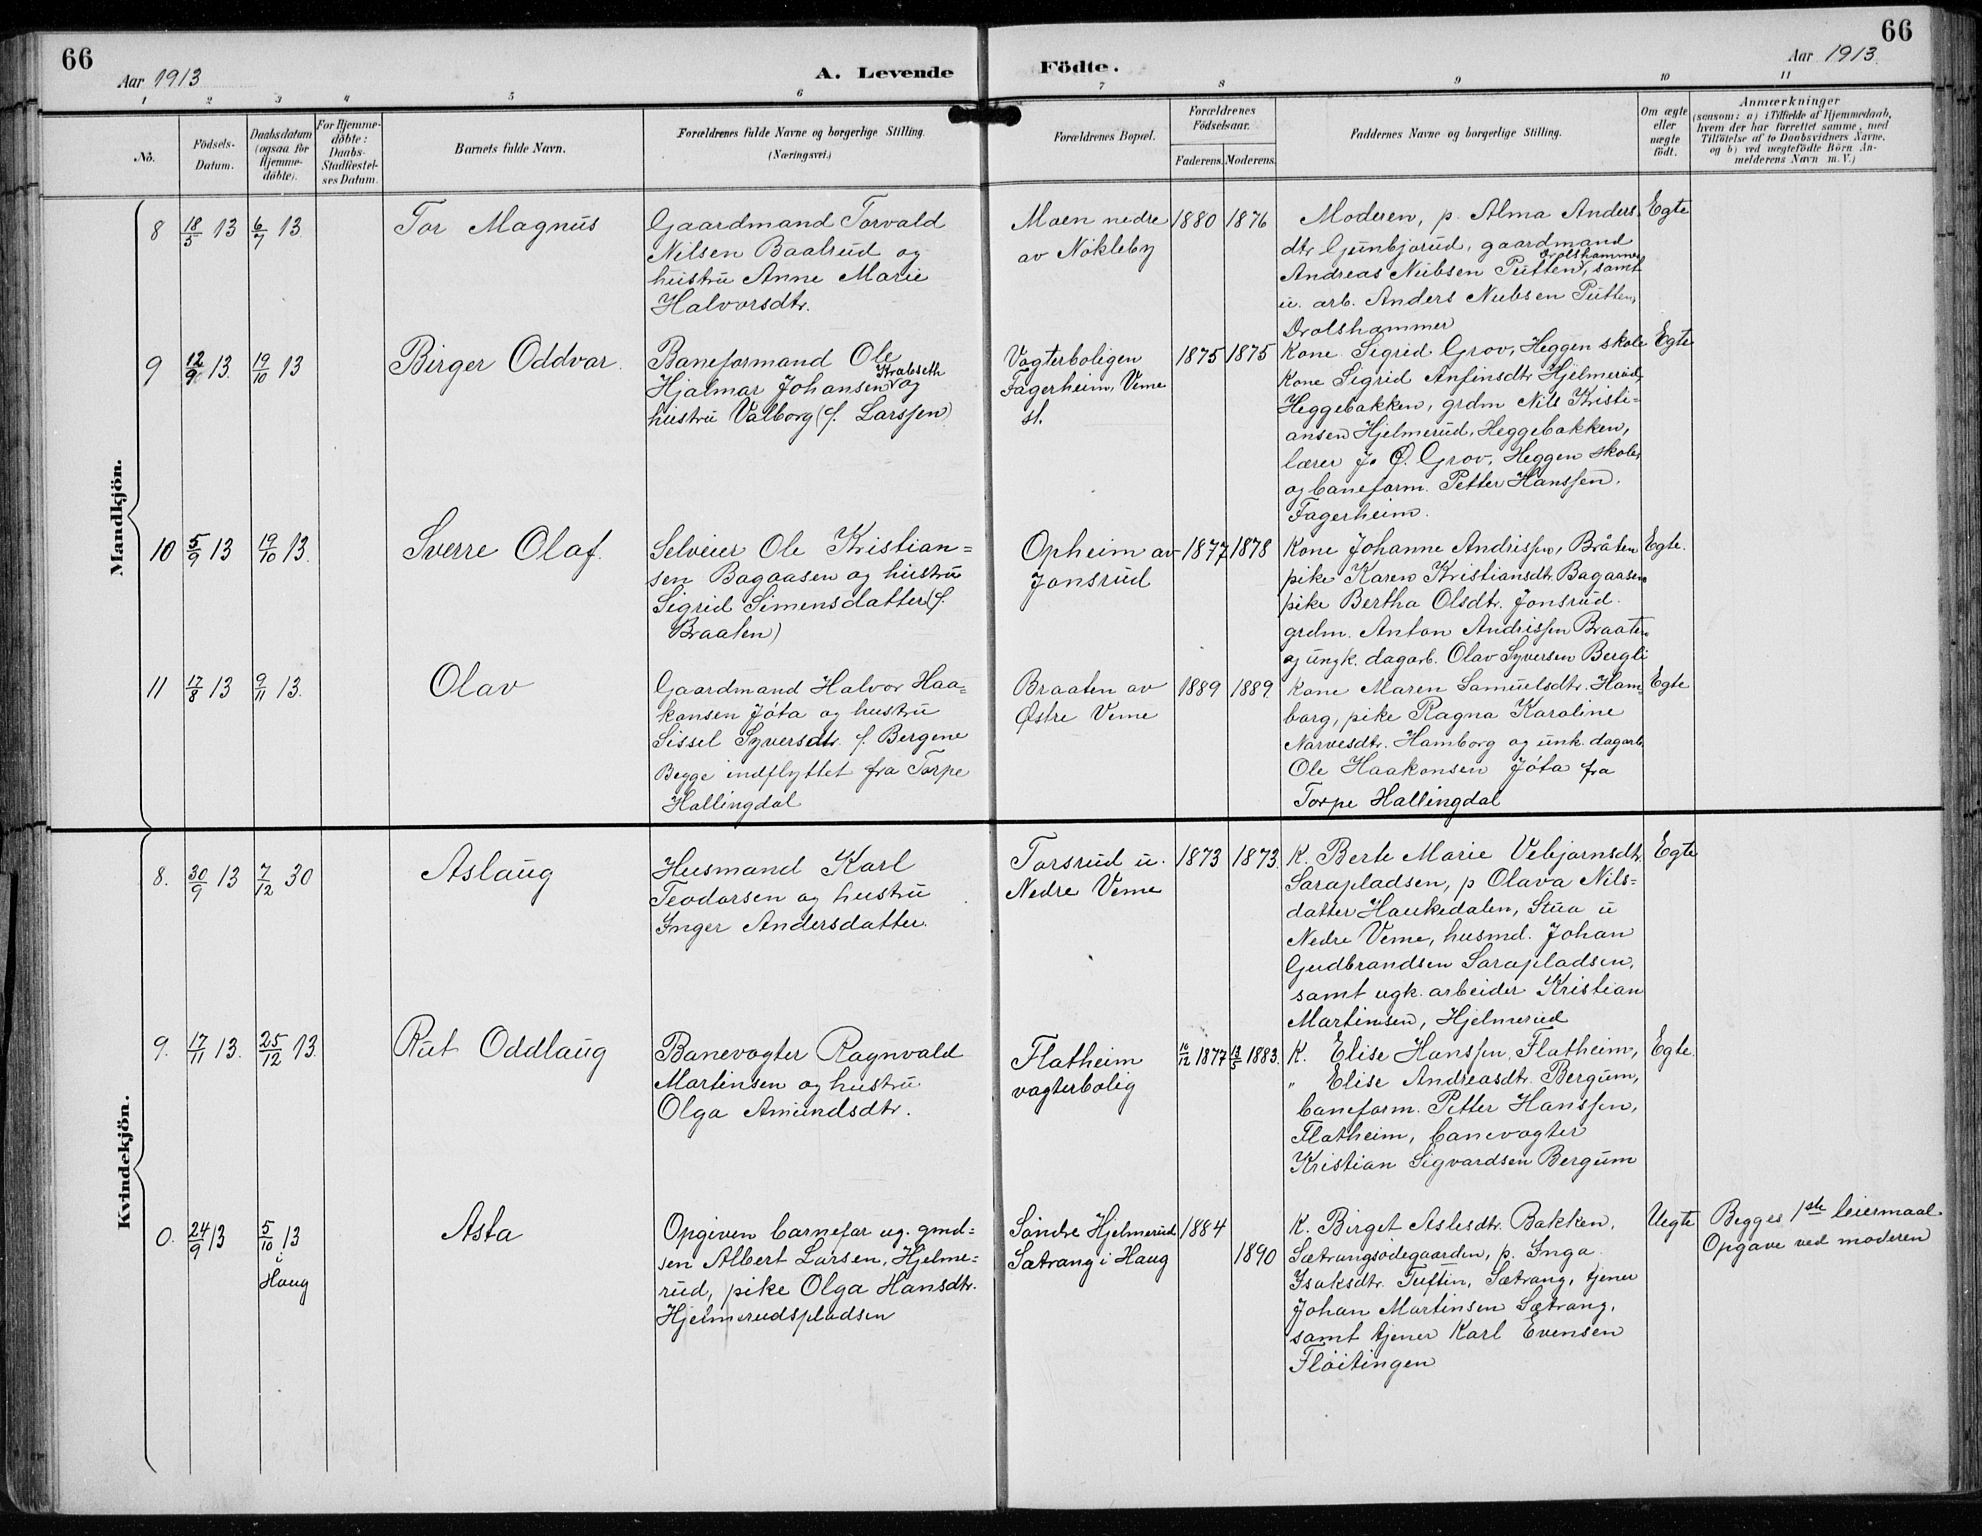 66
66
Aar 1913
A. Levende
Födte.
Aar 1913.
1 2 3 4 5 6 7 8 9 10 11
No.
Födsels-
Datum.
Daabsdatum
(ogsaa for
Hjemme-
döbte).
For Hjemme-
döbte:
Daabs-
Stadfæstel-
ses Datum.
Barnets fulde Navn.
Forældrenes fulde Navne og borgerlige Stilling.
(Næringsvei.)
Forældrenes Bopæl.
Forældrenes
Födselsaar.
Faderens. Moderens.
Faddernes Navne og borgerlige Stilling.
Om ægte
eller
uægte
födt.
Anmærkninger
(saasom: a) i Tilfælde af Hjemmedaab,
hvem der har forrettet samme, med
Tilföielse af to Daabsvidners Navne,
og b) ved uægtefödte Börn An-
melderens Navn m. V.)
Mandkjön.
8 18/5 13 6/7 13 Tor Magnus
Gaardmand Torvald
Nilsen Baalrud og
hustru Anne Marie
Halvorsdtr.
Moen nedre
av Nökleby
1880 1876
Moderen, p. Alma Anders
dtr Gunbjørud, gaardmand
Andreas Nubsen Putten, Drolshammer samt
u. arb. Anders Nubsen Putten,
Drolshammer
Egte
9 12/9 13. 19/10 13 Birger Oddvar.
Baneformand Ole
Hjalmar Johansen Krabseth og
hustru Valborg (f. Larssen)
Vogterboligen
Fagerheim, Veme
st.
1875 1875
Kone Sigrid Grov, Heggen skole
Kone Sigrid Anfinsdtr Hjelmerud,
Heggebakken, grdm Nils Kristi-
ansen Hjelmerud, Heggebakken,
lærer J. Ø. Grov, Heggen skole,
og baneform. Petter Hanssen,
Fagerheim.
Egte
10 5/9 13 19/10 13. Sverre Olaf.
Selveier Ole Kristian=
sen Bagaasen og hustru
Sigrid Simensdatter (f.
Braaten)
Opheim av
Jonsrud
1877 1878
Kone Johanne Andrissen, Bråten
pike Karen Kristiansdtr. Bagaasen
pike Bertha Olsdtr. Jonsrud.
grdm. Anton Andrissen Braaten
og ungk. dagarb. Olav Syversen Bergli
Egte.
11 17/8 13 9/11 13. Olav
Gaardmand Halvor Haa=
konsen Jóta og hustru
Sissel Syversdtr. f. Bergene
Begge indflyttet fra Torpe
Hallingdal
Braaten av
Østre Veme
1889 1889.
Kone Maren Samuelsdtr. Ham
borg, pike Ragna Karoline
Narvesdtr. Hamborg og unk. dagarb.
Ole Haakonsen Jóta fra
Torpe Hallingdal
Egte
Kvindekjön.
8. 30/9 13 7/12 30 Aslaug
Husmand Karl
Teodorsen og hustru
Inger Andersdatter.
Torsrud u.
Nedre Veme
1873 1873.
K. Berte Marie Vebjørnsdtr.
Sarapladsen, p Olava Nils=
datter Haukedalen, Stua u
Nedre Veme, husmd. Johan
Gudbrandsen Sarapladsen,
samt ugk. arbeider Kristian
Martinsen, Hjelmerud
Egte
9. 17/11 13. 25/12 13. Rut Oddlaug
Banevogter Ragnvald
Martinsen og hustru
Olga Amundsdtr.
Flatheim
vagterbolig
10/12 1877 13/5 1883.
K. Elise Hanssen, Flatheim,
" Elise Andreasdtr. Bergum,
baneform. Petter Hanssen,
Flatheim, banevogter
Kristian Sigvardsen Bergum
Egte.
0. 24/9 13 5/10 13
i
Haug
Asta
Opgiven barnefar ug. gmd=
sen Albert Larsen, Hjelme-
rud, pike Olga Hansdtr.
Hjelmerudspladsen
Søndre Hjelmerud
Sætrang i Haug
1884
1890
K. Birget Aslesdtr. Bakken,
Sætrangsødegaarden, p. Inga
Isaksdtr. Tuftin, Sætrang, tjener
Johan Martinsen Sætrang,
samt tjener Karl Evensen
Fløitingen
Uegte
Begges 1ste leiermaal.
Opgave ved moderen